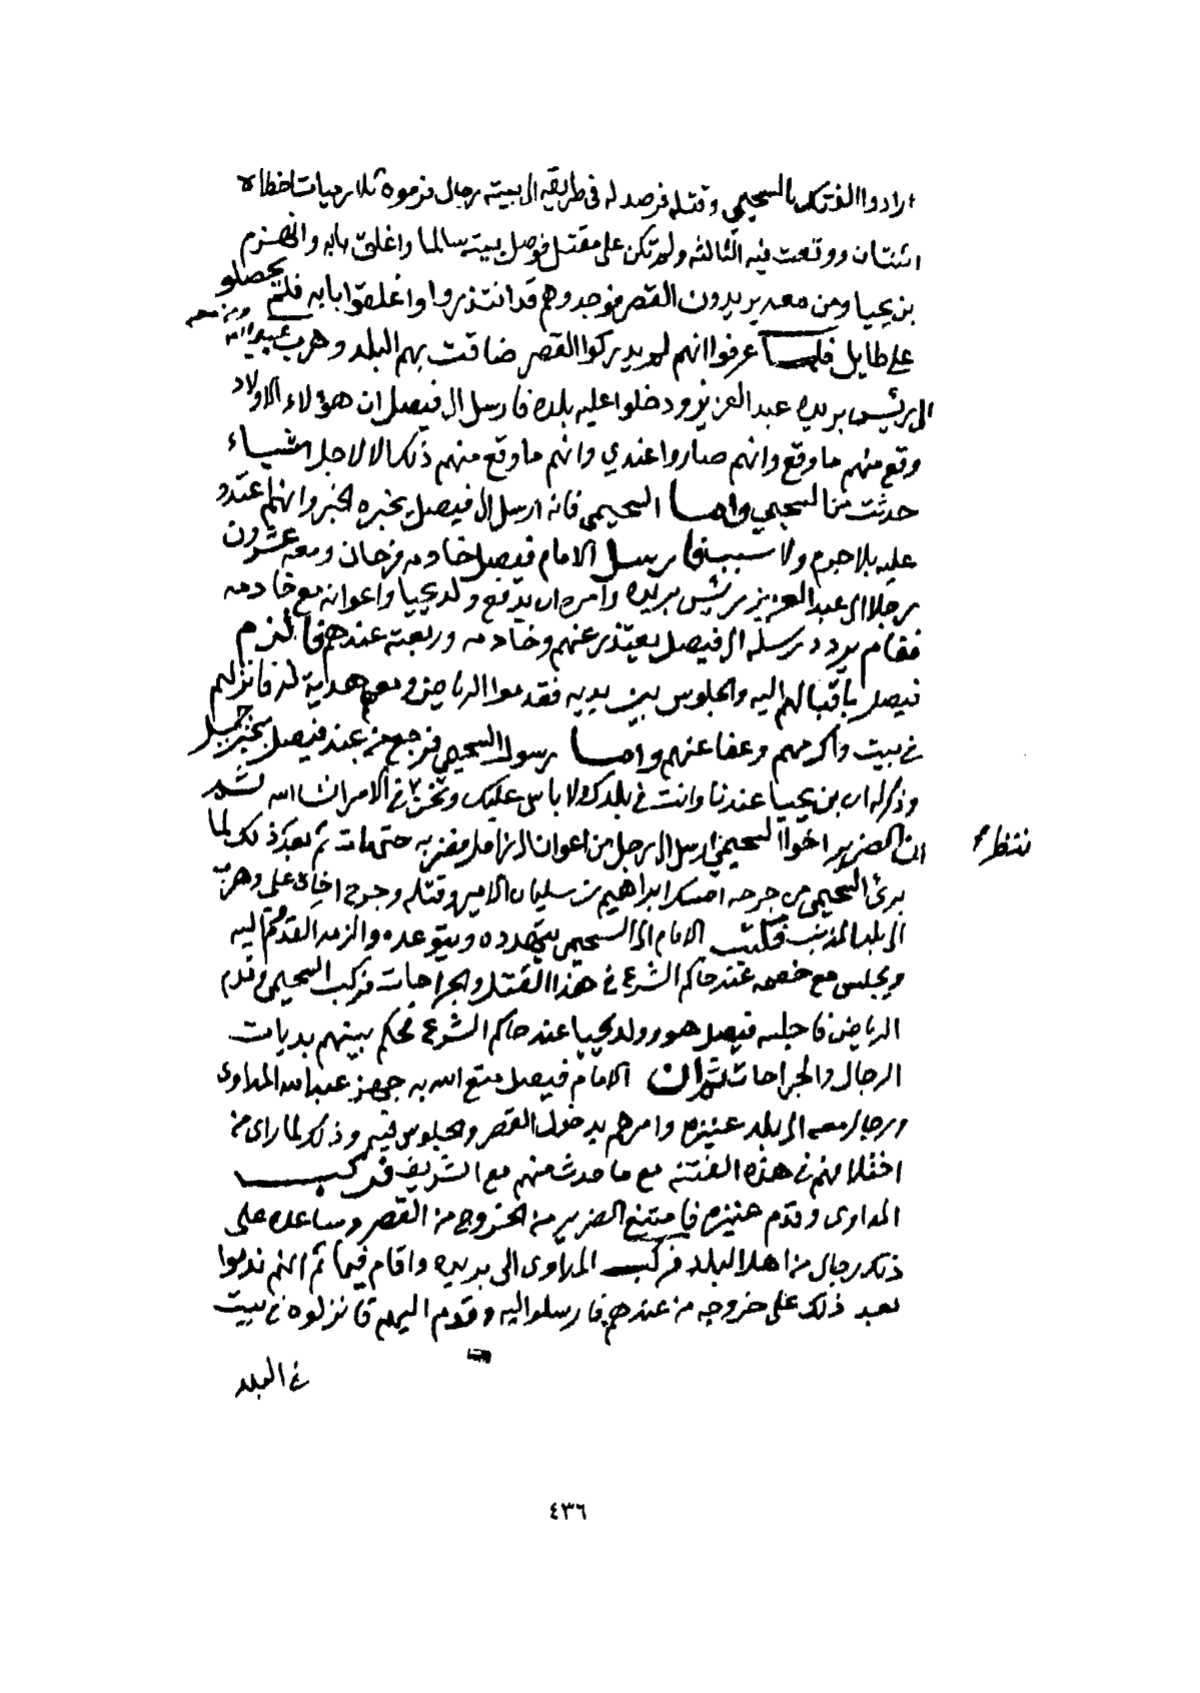 ارادوا الفتك بالسحيمي وقتله فرصد له في طريقه الى بيته رجال فرموه ثلاث رميات اخطاه
اثنتان ووقعت فيه الثالثه ولم تكن على مقتل فوصل بيته سالما واغلق بابه وانهزم
بن يحيا ومن معه يريدون القصر فوجدوهم قد انتذروا واغلقوا بابه فلم يحصلو
على طايل فلما عرفوا انهم لم يدركوا القصر ضاقت بهم البلد وهرب عبدالله ومن معه
الى رئيس بريده عبد العزيز ودخلوا عليه بلده فارسل الى فيصل ان هؤلاء الاولاد
وقع منهم ما وقع وانهم صاروا عندي وانهم ما وقع منهم ذلك الا لاجل اشياء
حدثت من السحيمي واما السحيمي فانه ارسل الى فيصل يخبره الخبر وانهم اعتدو
عليه بلا جرم ولا سبب فارسل الامام فيصل خادمه فرحان ومعه عشرون
رجلا الى عبد العزيز رئيس بريده وامره ان يدفع ولد يحيا واعوانه مع خادمه
فقام يردد رسله الى فيصل يعتذر عنهم وخادمه وربعته عندهم فالزم
فيصل باقبالهم اليه والجلوس بين يديه فقدموا الرياض ومعهم هداية له فانزلهم
في بيت واكرمهم وعفا عنهم واما رسول السحيمي فرجع من عند فيصل بخبر جميل
وذكر له ان بن يحيا عندنا وانت في بلدك ولا باس عليك ونحن في الامر ان شاء الله ثم
ننظر
ان الضرير اخوا السحيمي ارسل الى رجل من اعوان الزامل فضربه حتى مات ثم بعد ذلك لما
برئ السحيمي من جرحه امسك ابراهيم بن سليمان الامير وقتله وجرح اخاه علي وهرب
الى بلد المذنب فكتب الامام الى السحيمي يتهدده ويتوعده والزمه القدوم اليه
ويجلس مع خصمه عند حاكم الشرع في هذا القتل والجراحات فركب السحيمي وقدم
الرياض فاجلسه فيصل هو وولد يحيا عند حاكم الشرع فحكم بينهم بديات
الرجال والجراحات ثم ان الامام فيصل متع الله به جهز عبد الله المداوى
ورجال معه الى بلد عنيزه وامرهم بدخول القصر والجلوس فيه وذلك لما راى من
اختلافهم في هذه الفتنه مع ما حدث منهم مع الشريف فركب
المداوى وقدم عنيزه فامتنع الضرير من الخروج من القصر وساعده على
ذلك رجال من اهل البلد فركب المداوى الى بريده واقام فيها ثم انهم ندموا
بعد ذلك على خروجه من عندهم فارسلوا اليه وقدم اليهم فانزلوه في بيت
في البلد
٤٣٦